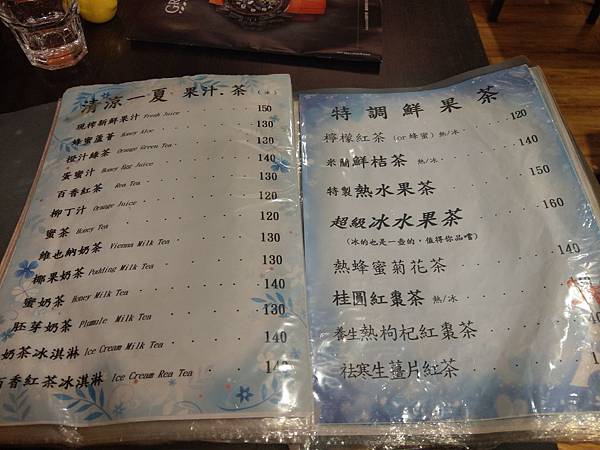 清涼一夏 果汁．茶（冰）
現榨新鮮果汁 Fresh Juice 150
蜂蜜蘆薈 Honey Aloe 130
橙汁綠茶 Orange Green Tea 130
蛋蜜汁 Honey Egg Juice 130
百香紅茶 Rea Tea 130
柳丁汁 Orange Juice 120
蜜茶 Honey Tea 120
維也納奶茶 Vienna Milk Tea 130
椰果奶茶 Pudding Milk Tea 130
蜜奶茶 Honey Milk Tea 140
胚芽奶茶 Plumule Milk Tea 130
奶茶冰淇淋 Ice Cream Milk Tea 140
百香紅茶冰淇淋 Ice Cream Rea Tea 140
特調鮮果茶
檸檬紅茶 (or蜂蜜)熱/冰 120
米蘭鮮桔茶 熱/冰 140
特製熱水果茶 150
超級冰水果茶 160
（冰的也是一壺的，值得你品嚐）
熱蜂蜜菊花茶 140
桂圓紅棗茶 熱/冰
養生熱枸杞紅棗茶
祛寒生薑片紅茶